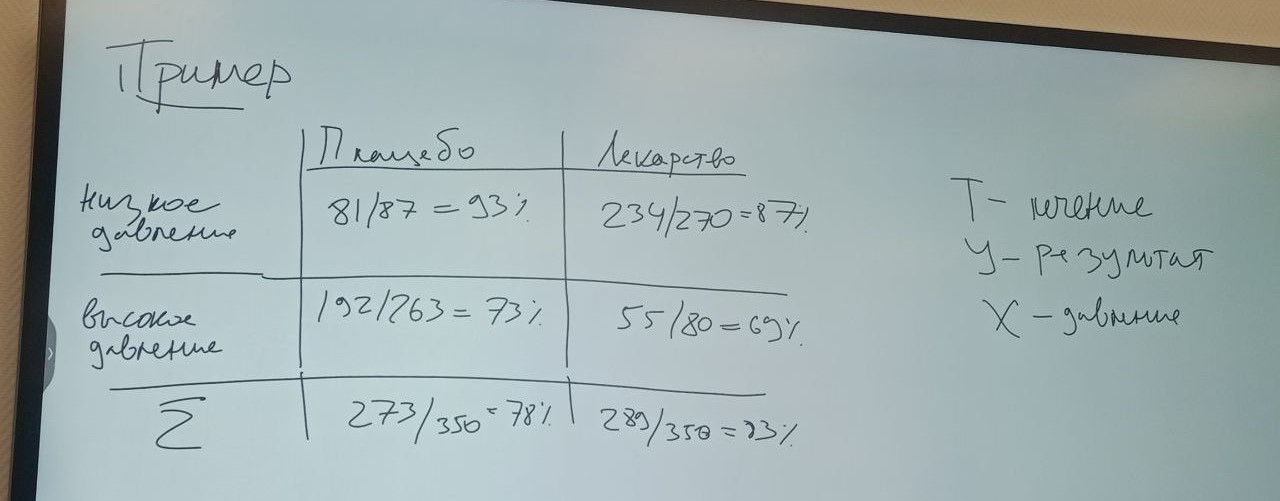 Пример
Плацебо Лекарство
низкое давление 81/87 = 93% 234/270 = 87%
высокое давление 192/263 = 73% 55/80 = 69%
Σ 273/350 = 78% 289/350 = 83%
T - лечение
Y - результат
X - давление